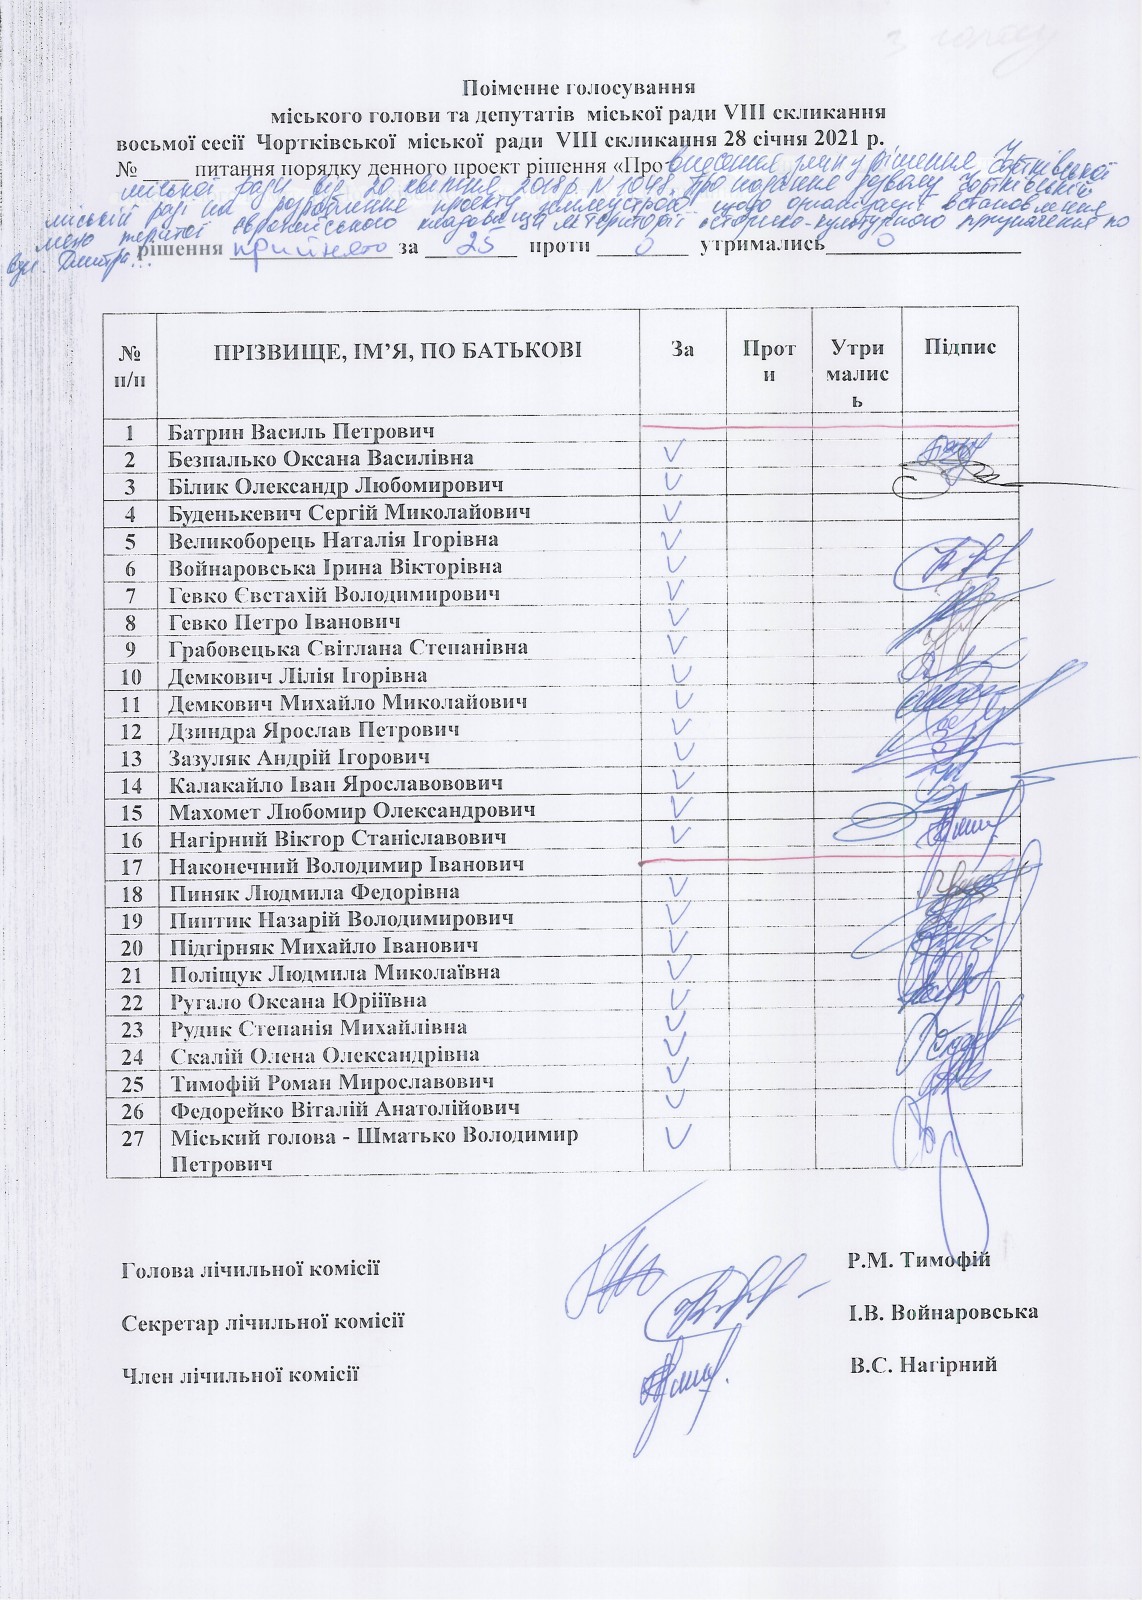 З голосу
Поіменне голосування
міського голови та депутатів міської ради VIII скликання
восьмої сесії Чортківської міської ради VIII скликання 28 січня 2021 р.
№ ____ питання порядку денного проект рішення «Про внесення змін у рішення Чортківської
міської ради від 20 квітня 2018р. N 1048 "Про надання дозволу Чортківській
міській раді на розроблення проекту землеустрою щодо організації і встановлення
меж території єврейського кладовища як території історико-культурного призначення по
вул. Дмитра...
рішення прийнято за 25 проти 0 утримались 0
№ п/п ПРІЗВИЩЕ, ІМ’Я, ПО БАТЬКОВІ За Проти Утрималис ь Підпис
1 Батрин Василь Петрович
2 Безпалько Оксана Василівна
3 Білик Олександр Любомирович
4 Буденькевич Сергій Миколайович
5 Великоборець Наталія Ігорівна
6 Войнаровська Ірина Вікторівна
7 Гевко Євстахій Володимирович
8 Гевко Петро Іванович
9 Грабовецька Світлана Степанівна
10 Демкович Лілія Ігорівна
11 Демкович Михайло Миколайович
12 Дзиндра Ярослав Петрович
13 Зазуляк Андрій Ігорович
14 Калакайло Іван Ярославовович
15 Махомет Любомир Олександрович
16 Нагірний Віктор Станіславович
17 Наконечний Володимир Іванович
18 Пиняк Людмила Федорівна
19 Пиптик Назарій Володимирович
20 Підгірняк Михайло Іванович
21 Поліщук Людмила Миколаївна
22 Ругало Оксана Юріїївна
23 Рудик Степанія Михайлівна
24 Скалій Олена Олександрівна
25 Тимофій Роман Мирославович
26 Федорейко Віталій Анатолійович
27 Міський голова - Шматько Володимир
Петрович
Голова лічильної комісії Р.М. Тимофій
Секретар лічильної комісії І.В. Войнаровська
Член лічильної комісії В.С. Нагірний